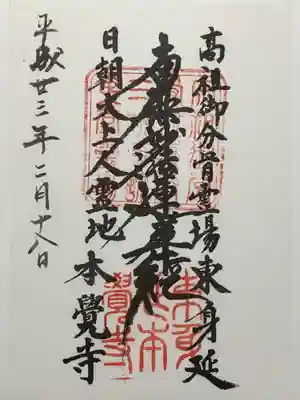 高祖御分骨霊場東身延
南無妙法蓮華経
日朝大上人霊地 本覺寺
平成廿三年二月十八日